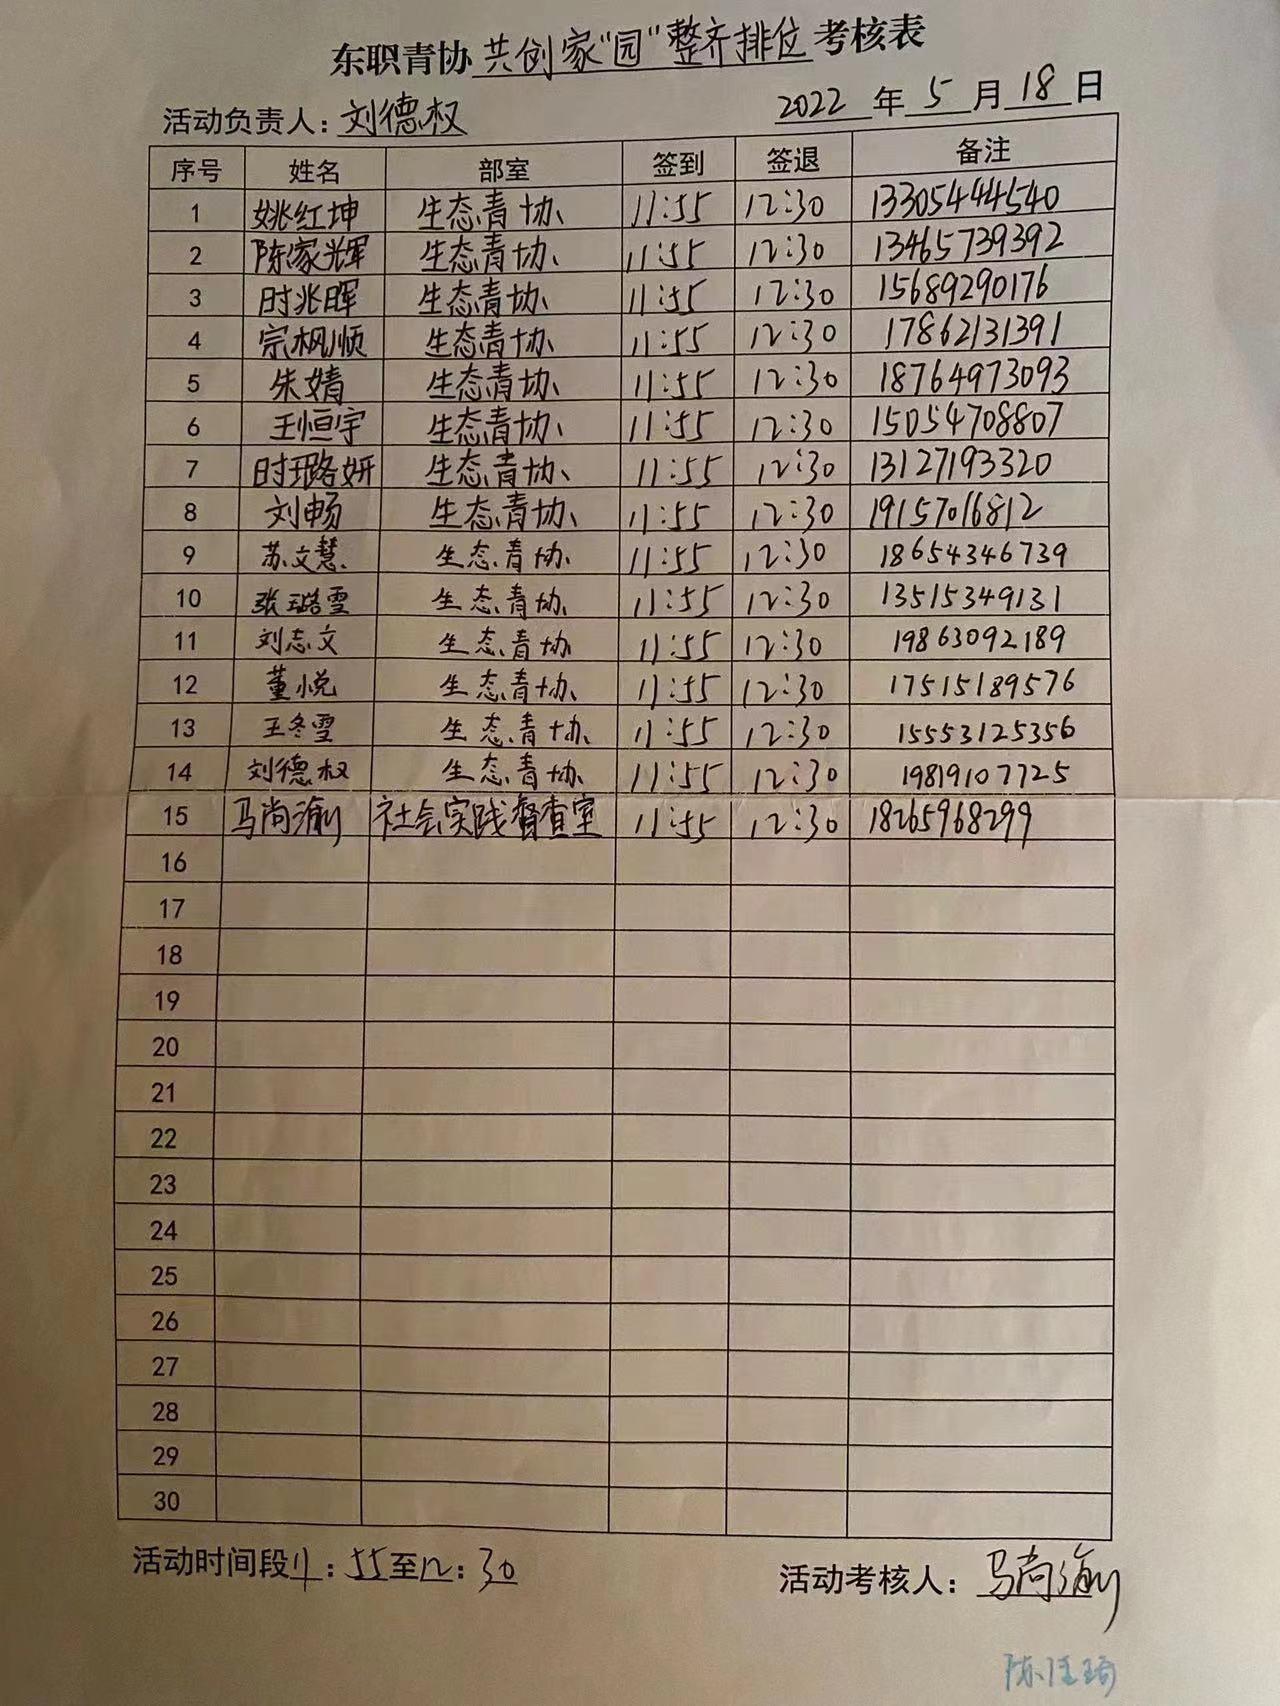 东职青协共创家“园”整齐排位考核表
活动负责人：刘德权 2022年5月18日
序号 姓名 部室 签到 签退 备注
1 姚红坤 生态青协 11:55 12:30 13305444540
2 陈家辉 生态青协 11:55 12:30 13465739392
3 时兆晖 生态青协 11:55 12:30 15689290176
4 宗枫顺 生态青协 11:55 12:30 17862131391
5 朱婧 生态青协 11:55 12:30 18764973093
6 王恒宇 生态青协 11:55 12:30 15054708807
7 时璐妍 生态青协 11:55 12:30 13127193320
8 刘畅 生态青协 11:55 12:30 19157016812
9 苏文慧 生态青协 11:55 12:30 18654346739
10 张璐雪 生态青协 11:55 12:30 13515349131
11 刘志文 生态青协 11:55 12:30 19863092189
12 董悦 生态青协 11:55 12:30 17515189576
13 王冬雪 生态青协 11:55 12:30 15553125356
14 刘德权 生态青协 11:55 12:30 19819107725
15 马尚渝 社会实践督查室 11:55 12:30 18265968299
16
17
18
19
20
21
22
23
24
25
26
27
28
29
30
活动时间段11:55至12:30 活动考核人：马尚渝
陈佳琦